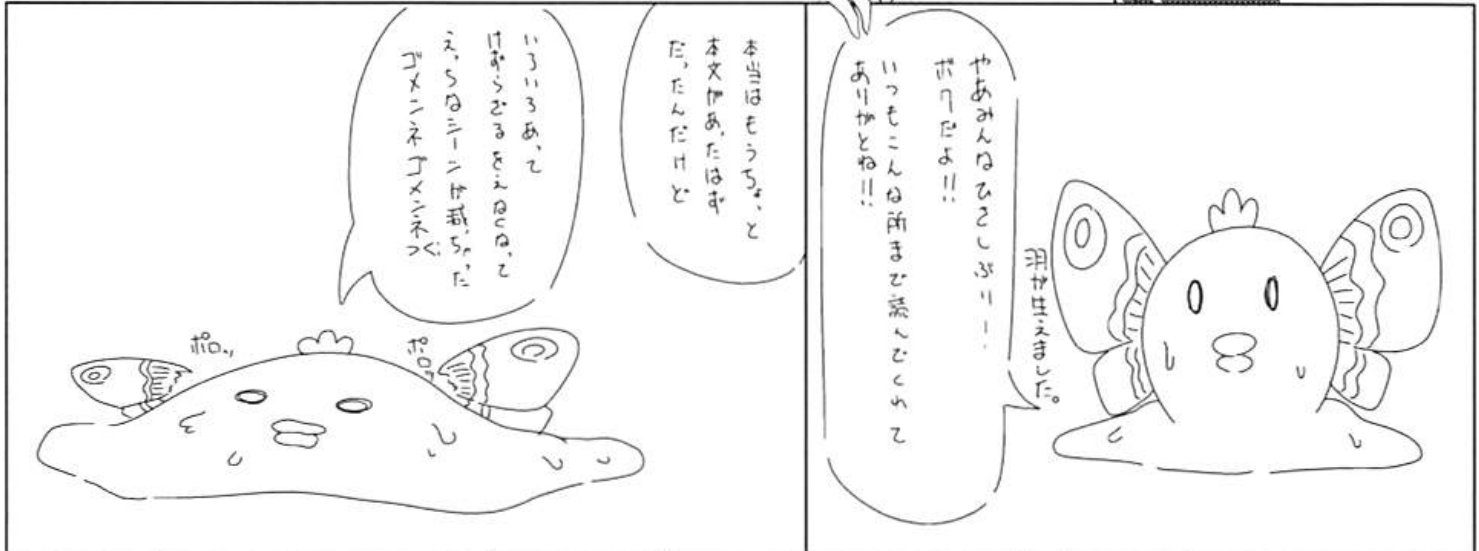 やあみんなひさしぶりー!
ボクだよ!!
いつもこんな所まで読んでくれて
ありがとね!!
羽が生えました。
本当はもうちょっと
本文があったはず
だったんだけど
いろいろあって
けずらざるをえなくなって
えっちなシーンが減っちゃった
ゴメンネゴメンネ
つぐ
ポロッ
ポロッ